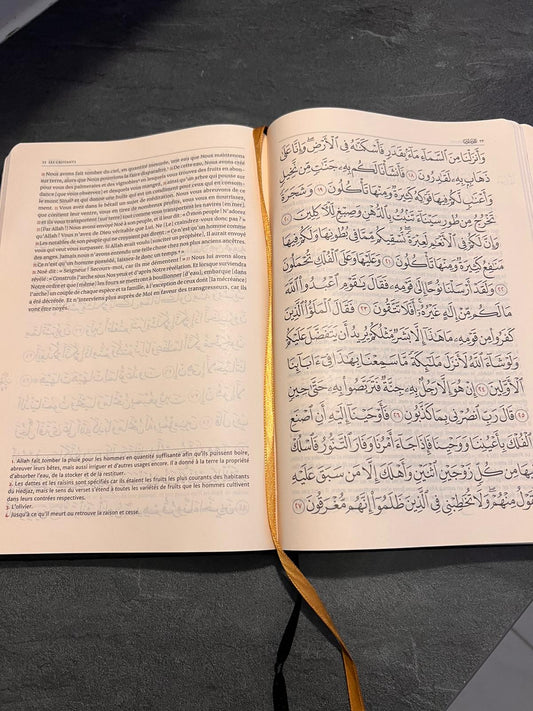 23. LES CROYANTS
18 Nous avons fait tomber du ciel, en quantité mesurée, une eau que Nous maintenons
sur terre, alors que Nous pourrions la faire disparaître¹. 19 De cette eau, Nous avons créé
pour vous des palmeraies et des vignobles² en lesquels vous trouvez des fruits en abon-
dance [que vous observez] et desquels vous mangez, 20 ainsi qu'un arbre qui pousse dans
le mont Sinaï³ et qui donne une huile qui est un condiment pour ceux qui en consom-
ment. 21 Vous avez dans le bétail un sujet de méditation. Nous vous abreuvons de ce
que contient leur ventre, vous en tirez de nombreux profits, vous vous en nourrissez,
22 et ils vous transportent [sur terre] tout comme vous transportent les navires [en mer].
23 [Par Allah !] Nous avons envoyé Noé à son peuple, et il leur dit : « Ô mon peuple ! Adorez
[qu'Allah] ! Vous n'avez de Dieu véritable que Lui. Ne [Le] craindrez-vous donc pas ? »
24 Les notables de son peuple qui ne croyaient pas dirent : « Ce n'est qu'un homme comme
vous qui veut vous surpasser. Si Allah avait voulu [susciter un prophète], Il aurait envoyé
des anges. Jamais nous n'avons entendu une telle chose chez nos plus anciens ancêtres.
25 Ce n'est qu'un homme possédé, laissez-le donc un temps⁴ »
26 Noé dit : « Seigneur ! Secours-moi, car ils me démentent ! » 27 Nous lui avons alors
révélé : « Construis l'arche sous Nos yeux et d'après Notre révélation. Et lorsque surviendra
Notre ordre et que [même] les fours se mettront à bouillonner [d'eau], embarque [dans
l'arche] un couple de chaque espèce et ta famille, à l'exception de ceux dont [la mécréance]
a été décrétée. Et n'interviens plus auprès de Moi en faveur des transgresseurs, car ils
vont être noyés.
1. Allah fait tomber la pluie pour les hommes en quantité suffisante afin qu'ils puissent boire,
abreuver leurs bêtes, mais aussi irriguer et d'autres usages encore. Il a donné à la terre la propriété
d'absorber l'eau, de la stocker et de la restituer.
2. Les dattes et les raisins sont spécifiés car ils étaient les fruits les plus courants des habitants
du Hedjaz, mais le sens du verset s'étend à toutes les variétés de fruits que les hommes cultivent
dans leurs contrées respectives.
3. L'olivier.
4. Jusqu'à ce qu'il meurt ou retrouve la raison et cesse.
وَأَنزَلْنَا مِنَ ٱلسَّمَآءِ مَآءًۢ بِقَدَرٍ فَأَسْكَنَّٰهُ فِى ٱلْأَرْضِ ۖ وَإِنَّا عَلَىٰ
ذَهَابٍۭ بِهِۦ لَقَٰدِرُونَ ١٨ فَأَنشَأْنَا لَكُم بِهِۦ جَنَّٰتٍ مِّن نَّخِيلٍ
وَأَعْنَٰبٍ لَّكُمْ فِيهَا فَوَٰكِهُ كَثِيرَةٌ وَمِنْهَا تَأْكُلُونَ ١٩ وَشَجَرَةً
تَخْرُجُ مِن طُورِ سَيْنَآءَ تَنۢبُتُ بِٱلدُّهْنِ وَصِبْغٍ لِّلْءَاكِلِينَ ٢٠
وَإِنَّ لَكُمْ فِى ٱلْأَنْعَٰمِ لَعِبْرَةً ۖ نُّسْقِيكُم مِّمَّا فِى بُطُونِهَا وَلَكُمْ فِيهَا
مَنَٰفِعُ كَثِيرَةٌ وَمِنْهَا تَأْكُلُونَ ٢١ وَعَلَيْهَا وَعَلَى ٱلْفُلْكِ تُحْمَلُونَ
٢٢ وَلَقَدْ أَرْسَلْنَا نُوحًا إِلَىٰ قَوْمِهِۦ فَقَالَ يَٰقَوْمِ ٱعْبُدُوا۟ ٱللَّهَ
مَا لَكُم مِّنْ إِلَٰهٍ غَيْرُهُۥٓ ۖ أَفَلَا تَتَّقُونَ ٢٣ فَقَالَ ٱلْمَلَؤُا۟ ٱلَّذِينَ
كَفَرُوا۟ مِن قَوْمِهِۦ مَا هَٰذَآ إِلَّا بَشَرٌ مِّثْلُكُمْ يُرِيدُ أَن يَتَفَضَّلَ عَلَيْكُمْ
وَلَوْ شَآءَ ٱللَّهُ لَأَنزَلَ مَلَٰٓئِكَةً مَّا سَمِعْنَا بِهَٰذَا فِىٓ ءَابَآئِنَا
ٱلْأَوَّلِينَ ٢٤ إِنْ هُوَ إِلَّا رَجُلٌۢ بِهِۦ جِنَّةٌ فَتَرَبَّصُوا۟ بِهِۦ حَتَّىٰ حِينٍ
٢٥ قَالَ رَبِّ ٱنصُرْنِى بِمَا كَذَّبُونِ ٢٦ فَأَوْحَيْنَآ إِلَيْهِ أَنِ ٱصْنَعِ
ٱلْفُلْكَ بِأَعْيُنِنَا وَوَحْيِنَا فَإِذَا جَآءَ أَمْرُنَا وَفَارَ ٱلتَّنُّورُ ۙ فَٱسْلُكْ
فِيهَا مِن كُلٍّ زَوْجَيْنِ ٱثْنَيْنِ وَأَهْلَكَ إِلَّا مَن سَبَقَ عَلَيْهِ
ٱلْقَوْلُ مِنْهُمْ ۖ وَلَا تُخَٰطِبْنِى فِى ٱلَّذِينَ ظَلَمُوٓا۟ ۖ إِنَّهُم مُّغْرَقُونَ ٢٧